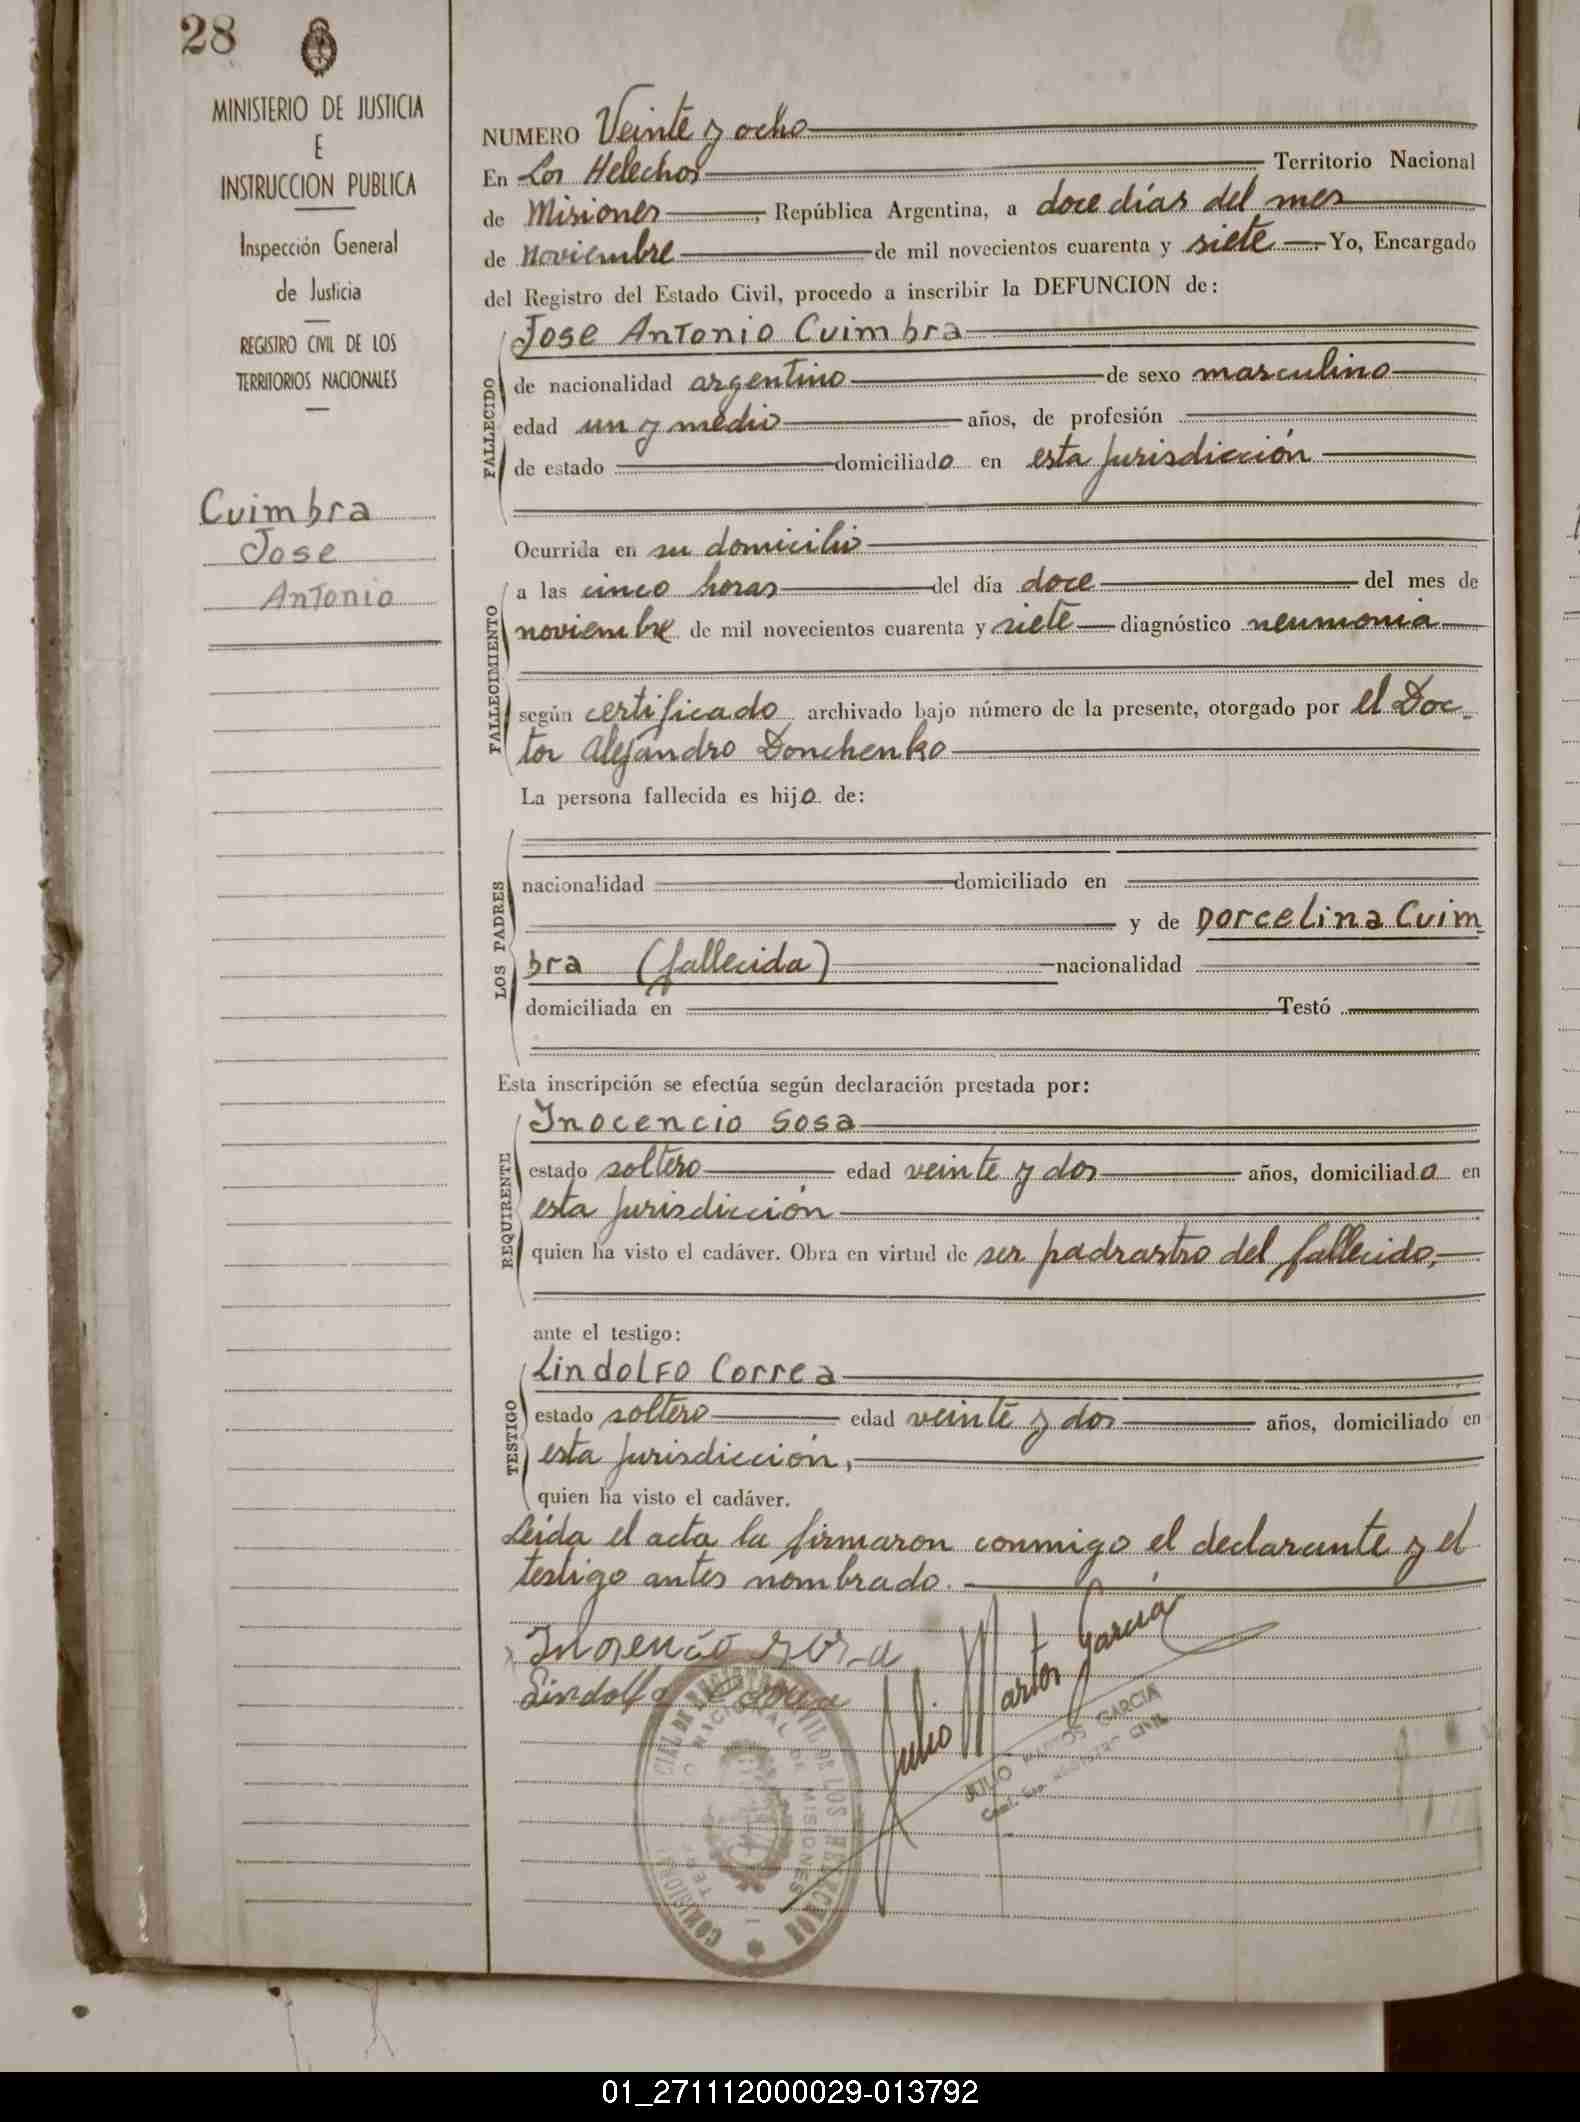 28
MINISTERIO DE JUSTICIA
E
INSTRUCCION PUBLICA
Inspección General
de Justicia
REGISTRO CIVIL DE LOS
TERRITORIOS NACIONALES
Cuimbra
Jose
Antonio
NUMERO Veinte y ocho
En Los Helechos Territorio Nacional
de Misiones, República Argentina, a doce días del mes
de noviembre de mil novecientos cuarenta y siete. Yo, Encargado
del Registro del Estado Civil, procedo a inscribir la DEFUNCION de:
FALLECIDO
Jose Antonio Cuimbra
de nacionalidad argentino de sexo masculino
edad un y medio años, de profesión
de estado domiciliado en esta jurisdicción
Ocurrida en su domicilio
FALLECIMIENTO
a las cinco horas del día doce del mes de
noviembre de mil novecientos cuarenta y siete diagnóstico neumonia
según certificado archivado bajo número de la presente, otorgado por el Doc-
tor Alejandro Donchenko
La persona fallecida es hijo de:
LOS PADRES
nacionalidad domiciliado en
y de Dorcelina Cuim
bra (fallecida) nacionalidad
domiciliada en Testó
Esta inscripción se efectúa según declaración prestada por:
REQUIRENTE
Inocencio Sosa
estado soltero edad veinte y dos años, domiciliado en
esta jurisdicción
quien ha visto el cadáver. Obra en virtud de ser padrastro del fallecido,
ante el testigo:
TESTIGO
Lindolfo Correa
estado soltero edad veinte y dos años, domiciliado en
esta jurisdicción,
quien ha visto el cadáver.
Leida el acta la firmaron conmigo el declarante y el
testigo antes nombrado.
Julio Martos Garcia
JULIO MARTOS GARCIA
REGISTRO CIVIL
01_271112000029-013792